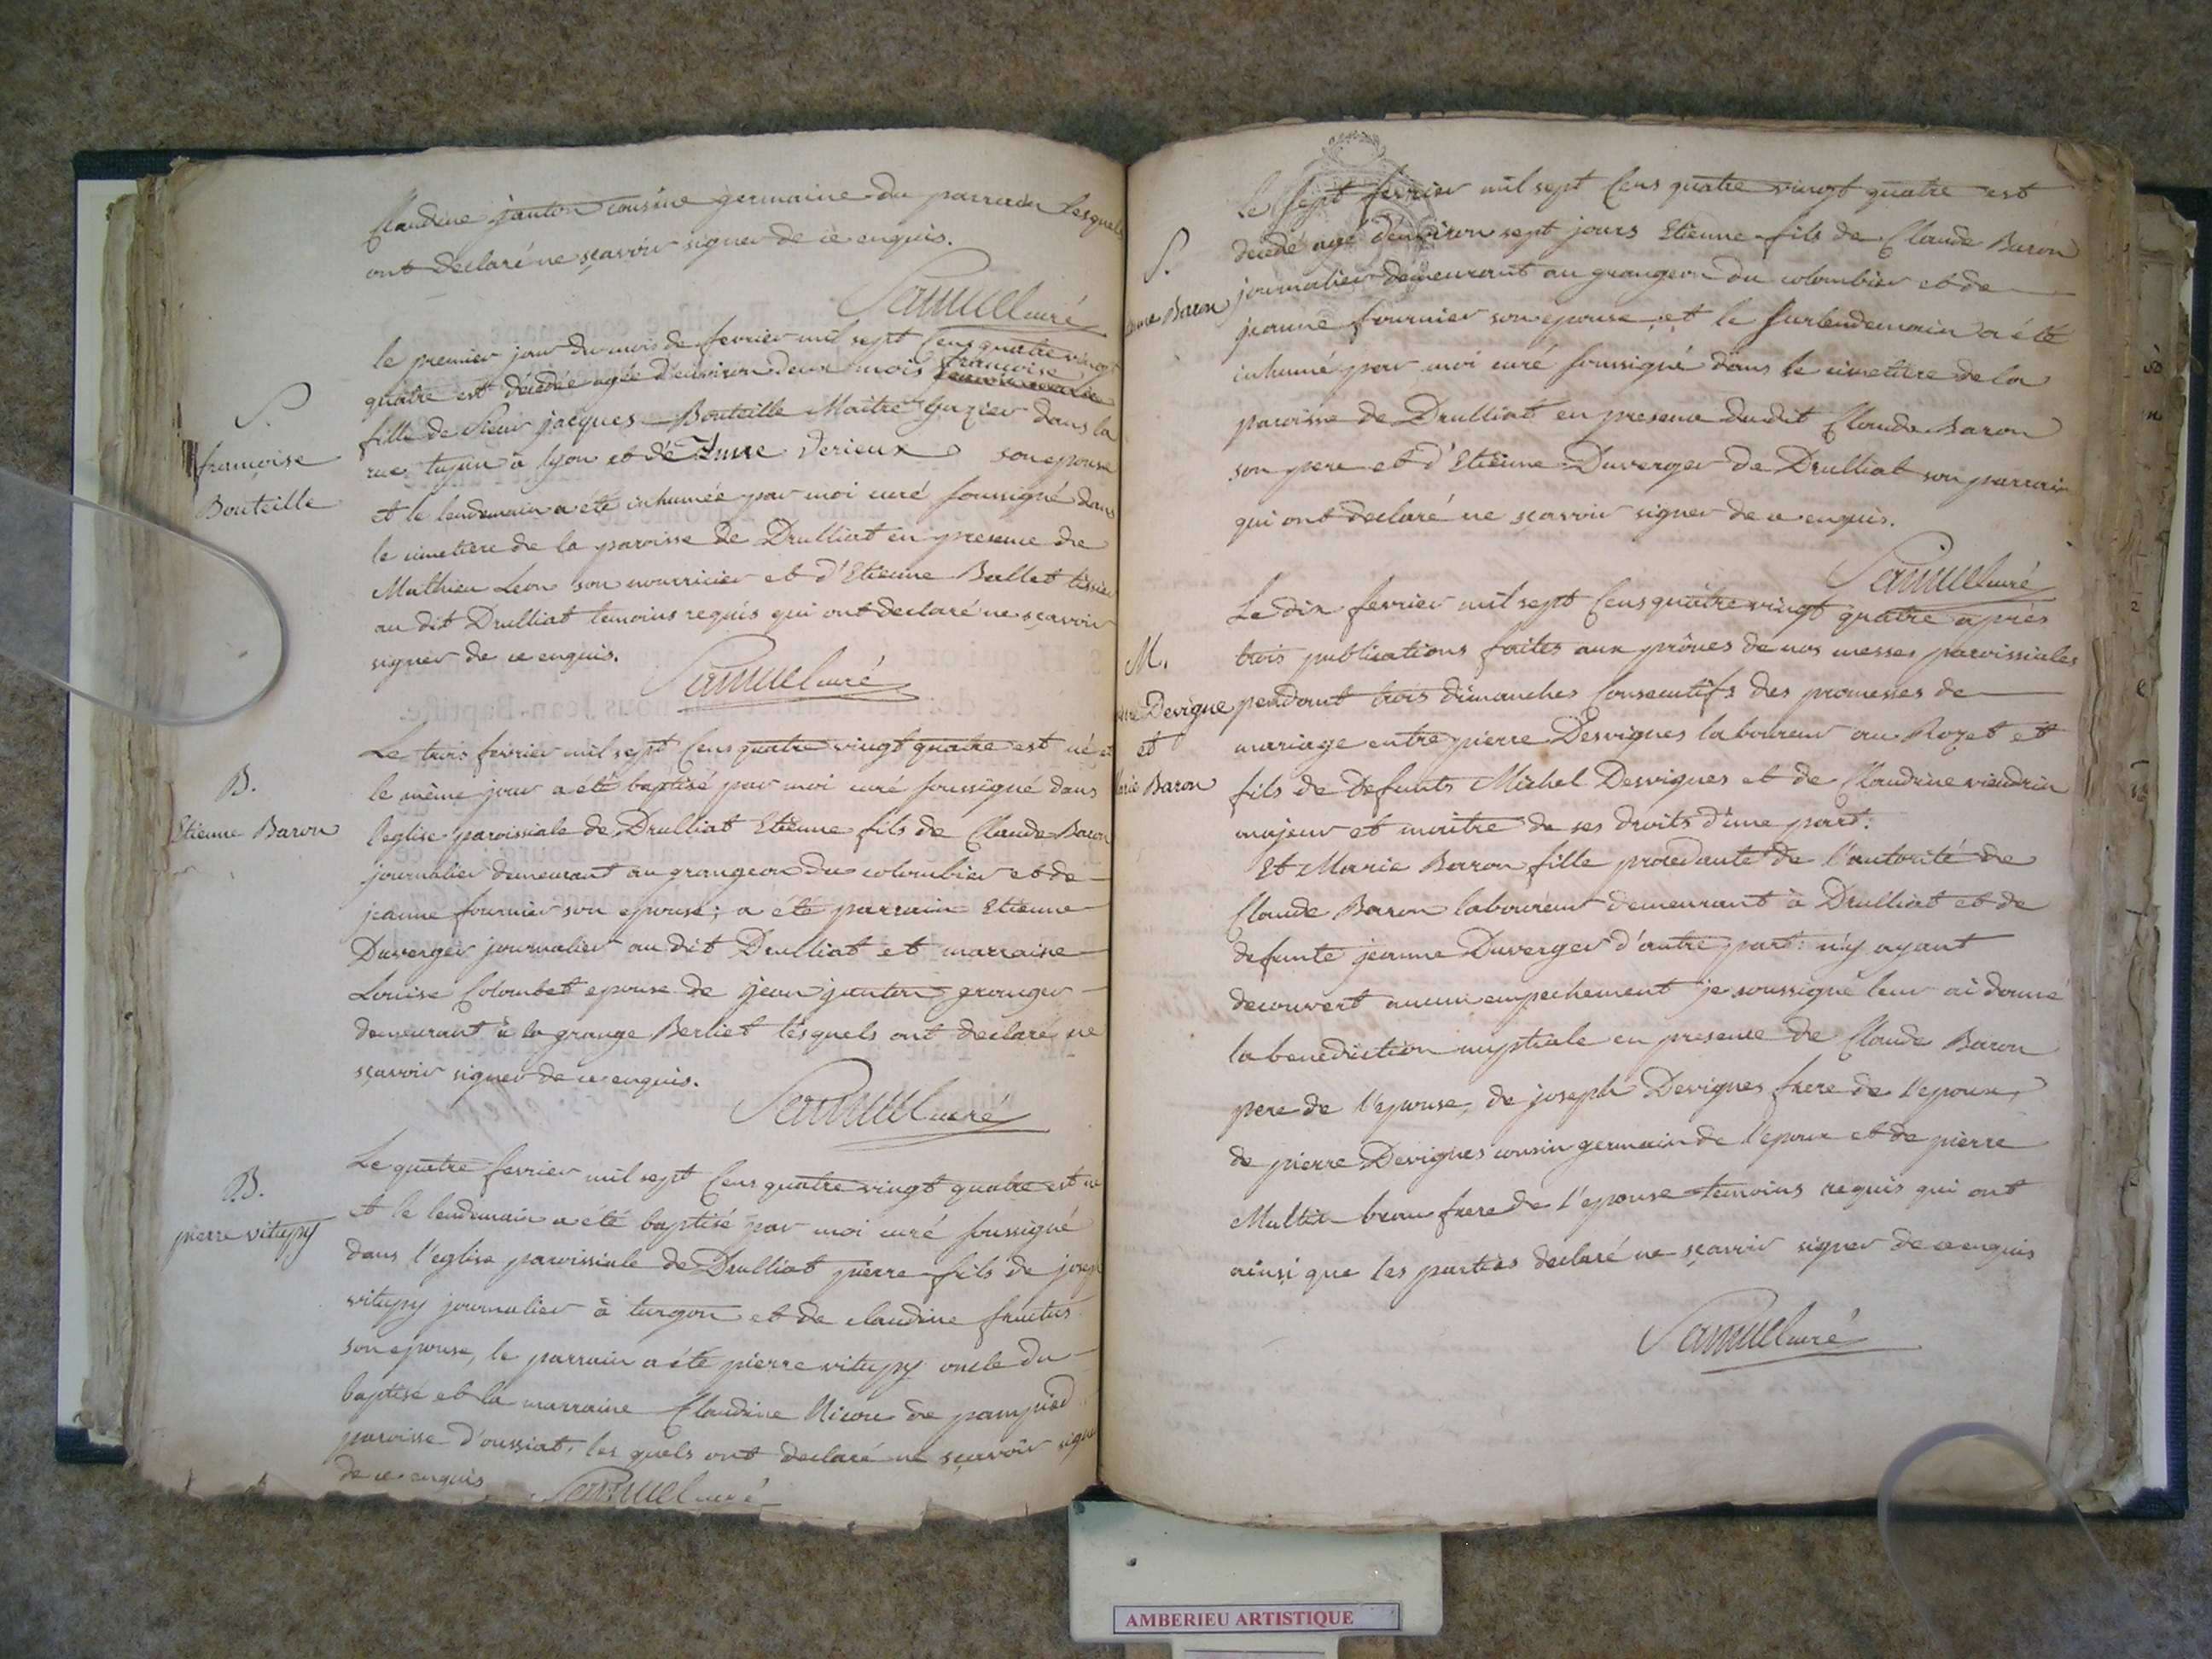 Claudine janton cousine germaine du parrain lesquels
ont declaré ne sçavoir signer de ce enquis.
Samuel curé
S.
françoise
Bouteille
le premier jour du mois de fevrier mil sept Cens quatre vingt
quatre est decedée agée d'environ deux mois françoise
fille de Sieur jacques Bouteille Maitre Gazier dans la
rue tupin à lyon et de Anne Derieux son epouse
et le lendemain a eté inhumée par moi curé soussigné dans
le cimetiere de la paroisse de Drulliat en presence de
Mathieu Leon son nourricier et d'Etienne Ballet tissier
au dit Drulliat temoins requis qui ont declaré ne sçavoir
signer de ce enquis.
Samuel curé
B.
Etienne Baron
Le trois fevrier mil sept Cens quatre vingt quatre est né et
le même jour a été baptisé par moi curé soussigné dans
l'eglise paroissiale de Drulliat Etienne fils de Claude Baron
journalier demeurant au grangeon du colombier et de
jeanne fournier son epouse; a été parrain Etienne
Duverger journalier au dit Drulliat et marraine
Louise Colombet epouse de jean janton granger
demeurant à la grange Berliet lesquels ont declaré ne
sçavoir signer de ce enquis.
Samuel curé
B.
pierre vitupy
Le quatre fevrier mil sept Cens quatre vingt quatre est né
et le lendemain a été baptisé par moi curé soussigné
dans l'eglise paroissiale de Drulliat pierre fils de joseph
vitupy journalier à turgon et de claudine fruitus
son epouse, le parrain a été pierre vitupy oncle du
baptisé et la marraine Claudine Nicou de
paroisse d'oussiat, les quels ont declaré ne sçavoir signer
de ce enquis Samuel curé
S.
Baron
Le sept fevrier mil sept Cens quatre vingt quatre est
decedé agé d'environ sept jours Etienne fils de Claude Baron
journalier demeurant au grangeon du colombier et de
jeanne fournier son epouse, et le surlendemain a été
inhumé par moi curé soussigné dans le cimetiere de la
paroisse de Drulliat en presence dudit Claude Baron
son pere et d'Etienne Duverger de Drulliat son parrain
qui ont declaré ne sçavoir signer de ce enquis.
Samuel curé
M.
Devigne
et
Baron
Le dix fevrier mil sept Cens quatre vingt quatre après
trois publications faites aux prônes de nos messes paroissiales
pendant trois dimanches Consecutifs des promesses de
mariage entre pierre Desvignes laboureur au Rozet et
fils de defunts Michel Desvignes et de Claudine viendrin
majeur et maitre de ses droits d'une part.
Et Marie Baron fille procedante de l'autorité de
Claude Baron laboureur demeurant à Drulliat et de
defunte jeanne Duverger d'autre part; n'y ayant
decouvert aucun empechement je soussigné leur ai donné
la benediction nuptiale en presence de Claude Baron
pere de l'epouse, de joseph Devignes frere de l'epoux,
de pierre Devignes cousin germain de l'epoux et de pierre
Multin beau frere de l'epouse temoins requis qui ont
ainsi que les parties declaré ne sçavoir signer de ce enquis
Samuel curé
AMBERIEU ARTISTIQUE